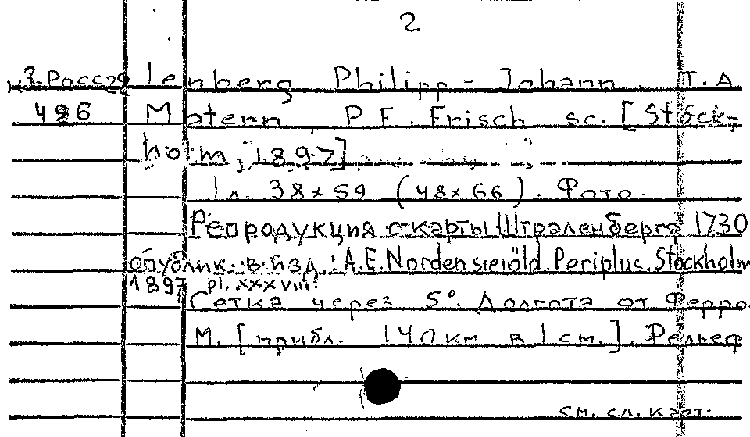 2
lenberg Philipp-Johann T. A.
496 Matern P. F. Frisch sc. [Stock-
holm, 1897]
1 л. 38×59 (48×66). Фото.
Репродукция с карты Штраленберга 1730
опублик. в изд.: A.E. Nordenskiöld Periplus. Stockholm
1897 pl. XXXVIII
Сетка через 5°. Долгота от Ферро
М. [прибл. 140 км в 1 см.]. Рельеф
см. сл. карт.